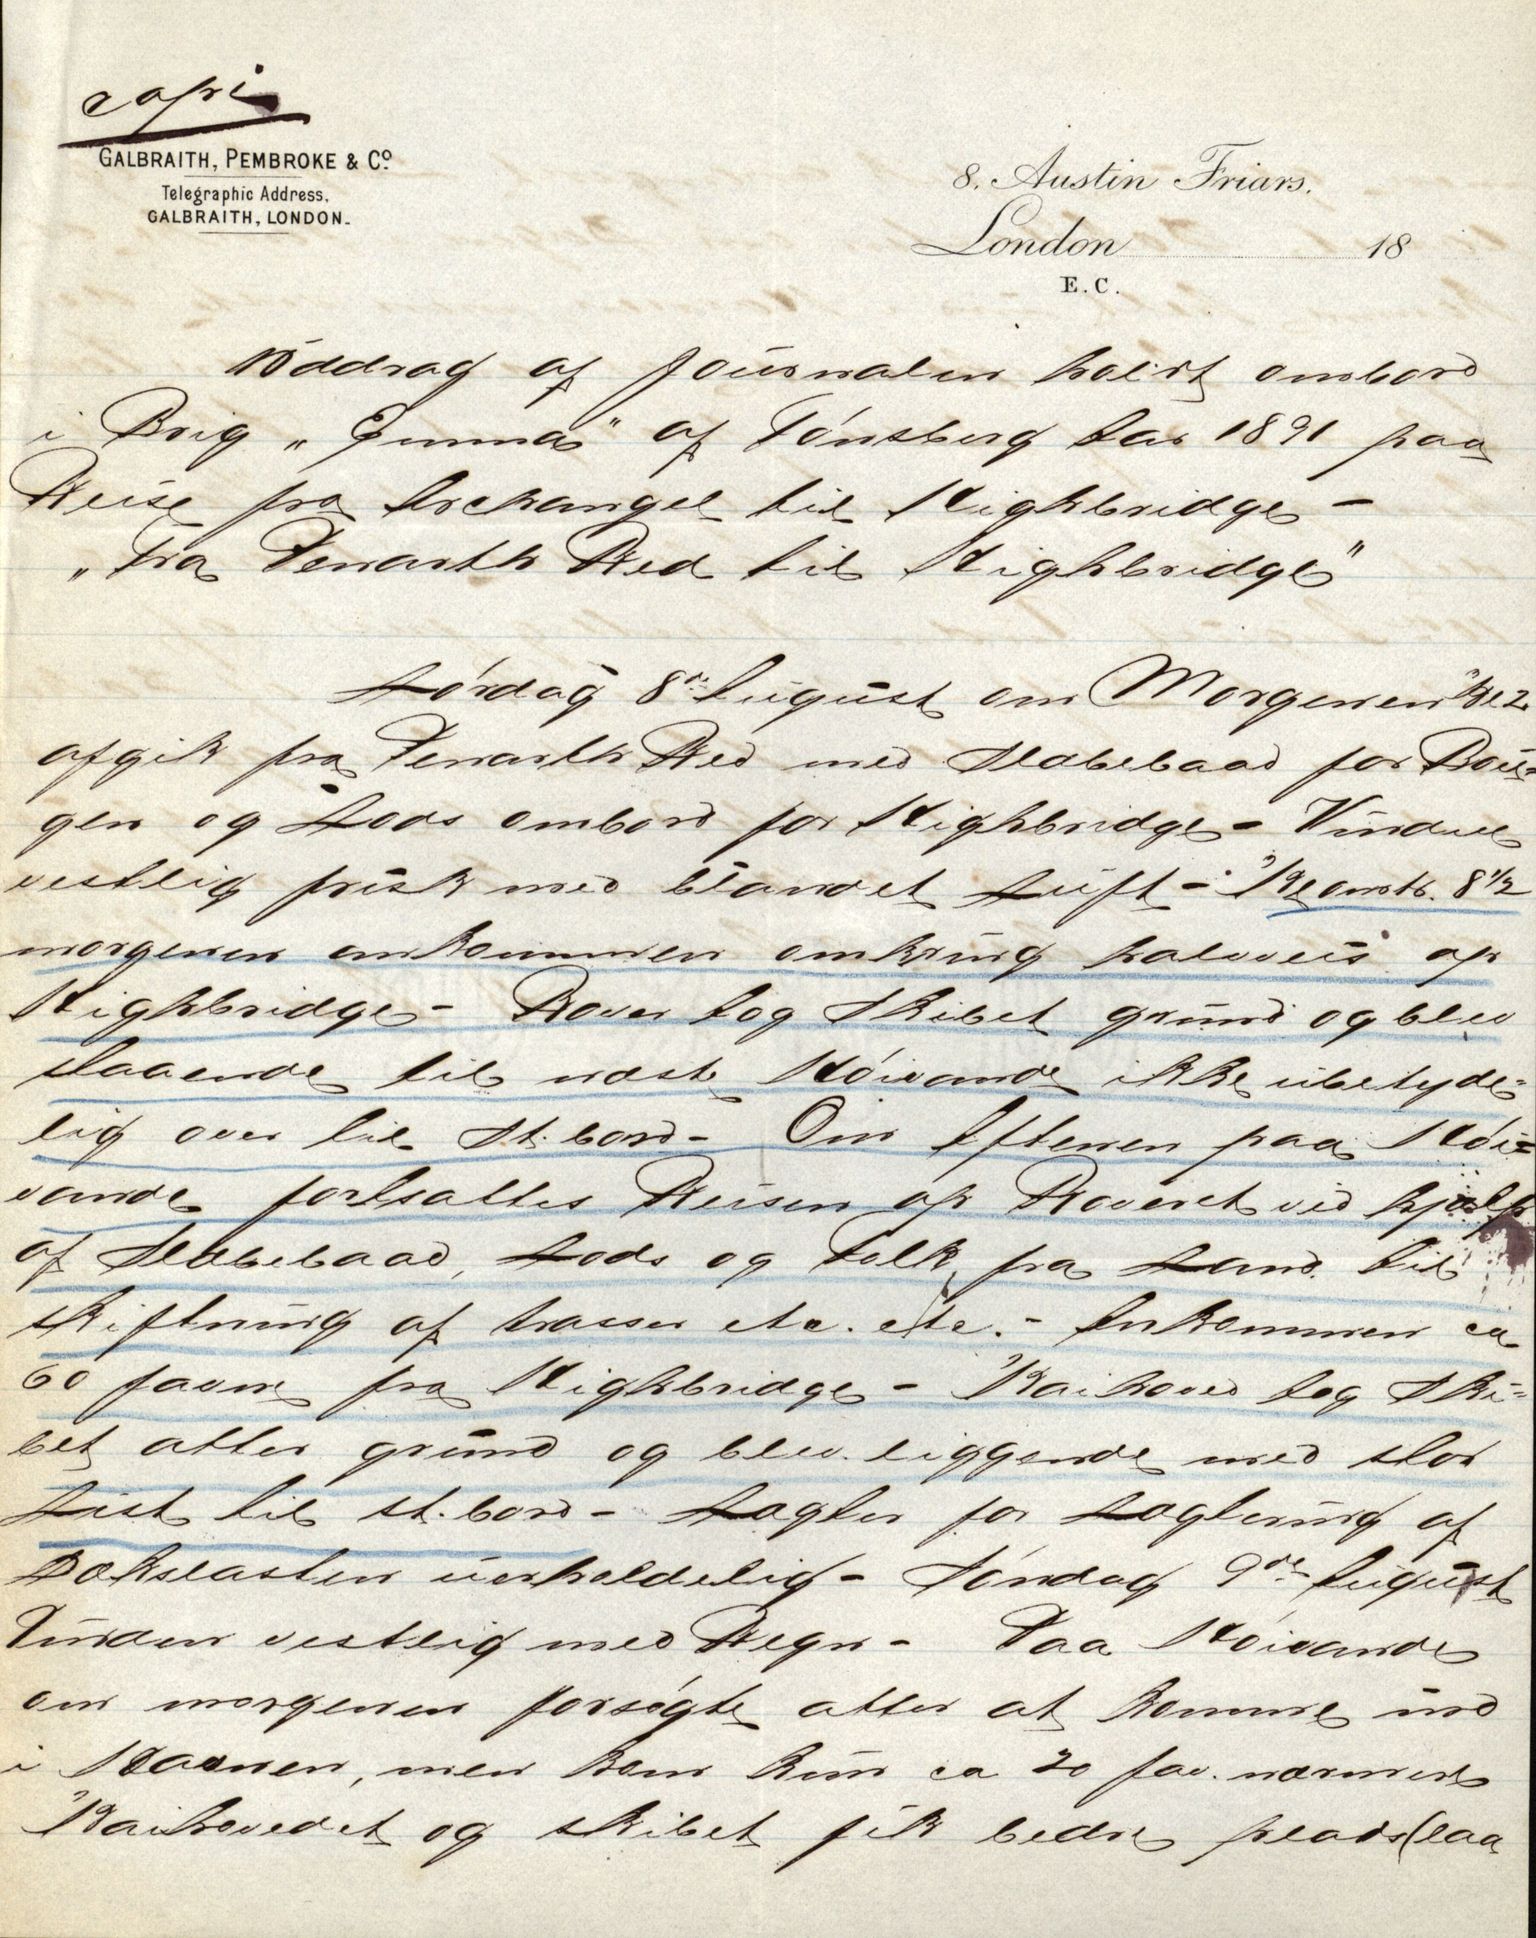 copi
GALBRAITH, PEMBROKE & Cº
Telegraphic Address,
GALBRAITH, LONDON.
8, Austin Friars.
London 18
E.C.
Uddrag af Journalen holdt ombord
i Brig „Gunna" af Tønsberg Aar 1891 paa
Reise fra Archangel til Highbridge -
„Fra Penarth Red til Highbridge"
Lørdag 8de August om Morgenen Kl 2
afgik fra Penarth Red med Slæbebaad for Bou-
gen og Lods ombord for Highbridge - Vinden
vestlig frisk med blandet Luft - Kl omtr. 8 1/2
morgenen ankommen omkring halvveis op
Highbridge - Rover tog Skibet grund og blev
staaende til næste Høivande ikke ubetyde-
lig over til St.bord - Om Aftenen paa Høi-
vande fortsattes Reisen op Roveret ved hjælp
af Slæbebaad, Lods og Folk fra Land til
skiftning af trosser etc. etc. - Ankommen ca
60 favne fra Highbridge - Kaihoved tog Ski-
bet atter grund og blev liggende med stor
List til st.bord - Lagler for Laglering af
Dækslasten uerholdelig - Søndag 9de August
Vinden vestlig med Regn - Paa Høivande
om morgenen forsøgte atter at komme ind
i Havnen, men kom kun ca 20 fav. nærmere
Kaihovedet og skibet fik bedre plads (laa